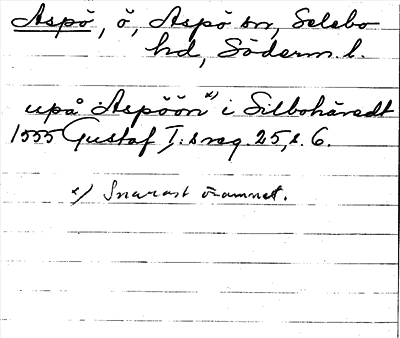 Aspö, ö, Aspö sn, Selebo
hd, Söderm. l.
upå Aspöön x) i Silbohäredt
1555 Gustaf I:s reg. 25, s. 6.
x) Snarast önamnet.